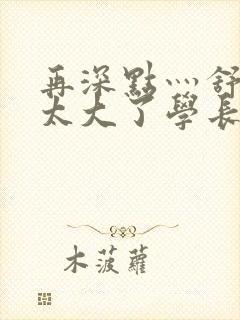 再深點灬舒
太大了學長
木菠蘿